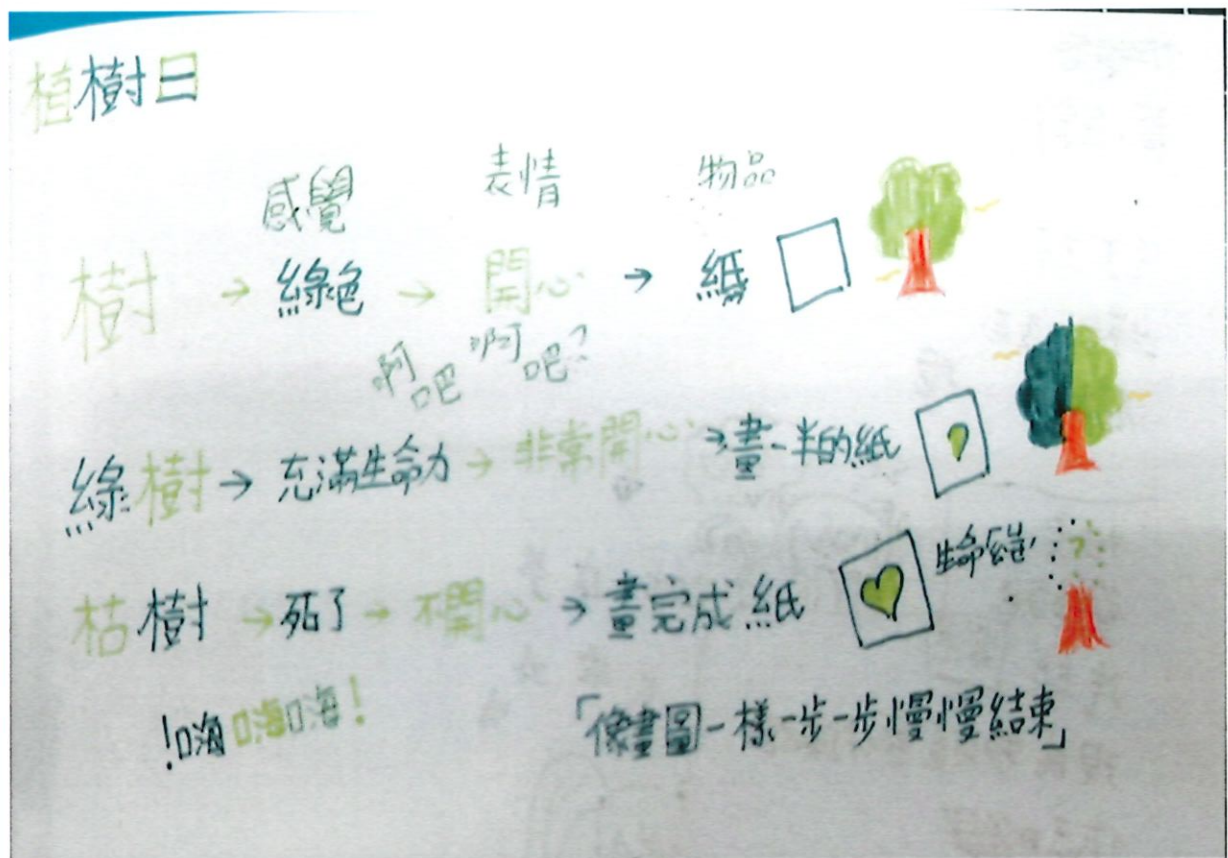 植樹日
感覺 表情 物品
樹 → 綠色 → 開心 → 紙
啊吧 啊吧?
綠樹 → 充滿生命力 → 非常開心 → 畫一半的紙
枯樹 → 死了 → 不開心 → 畫完成紙 生命
!嗨嗨嗨!
「像畫圖一樣一步一步慢慢結束」